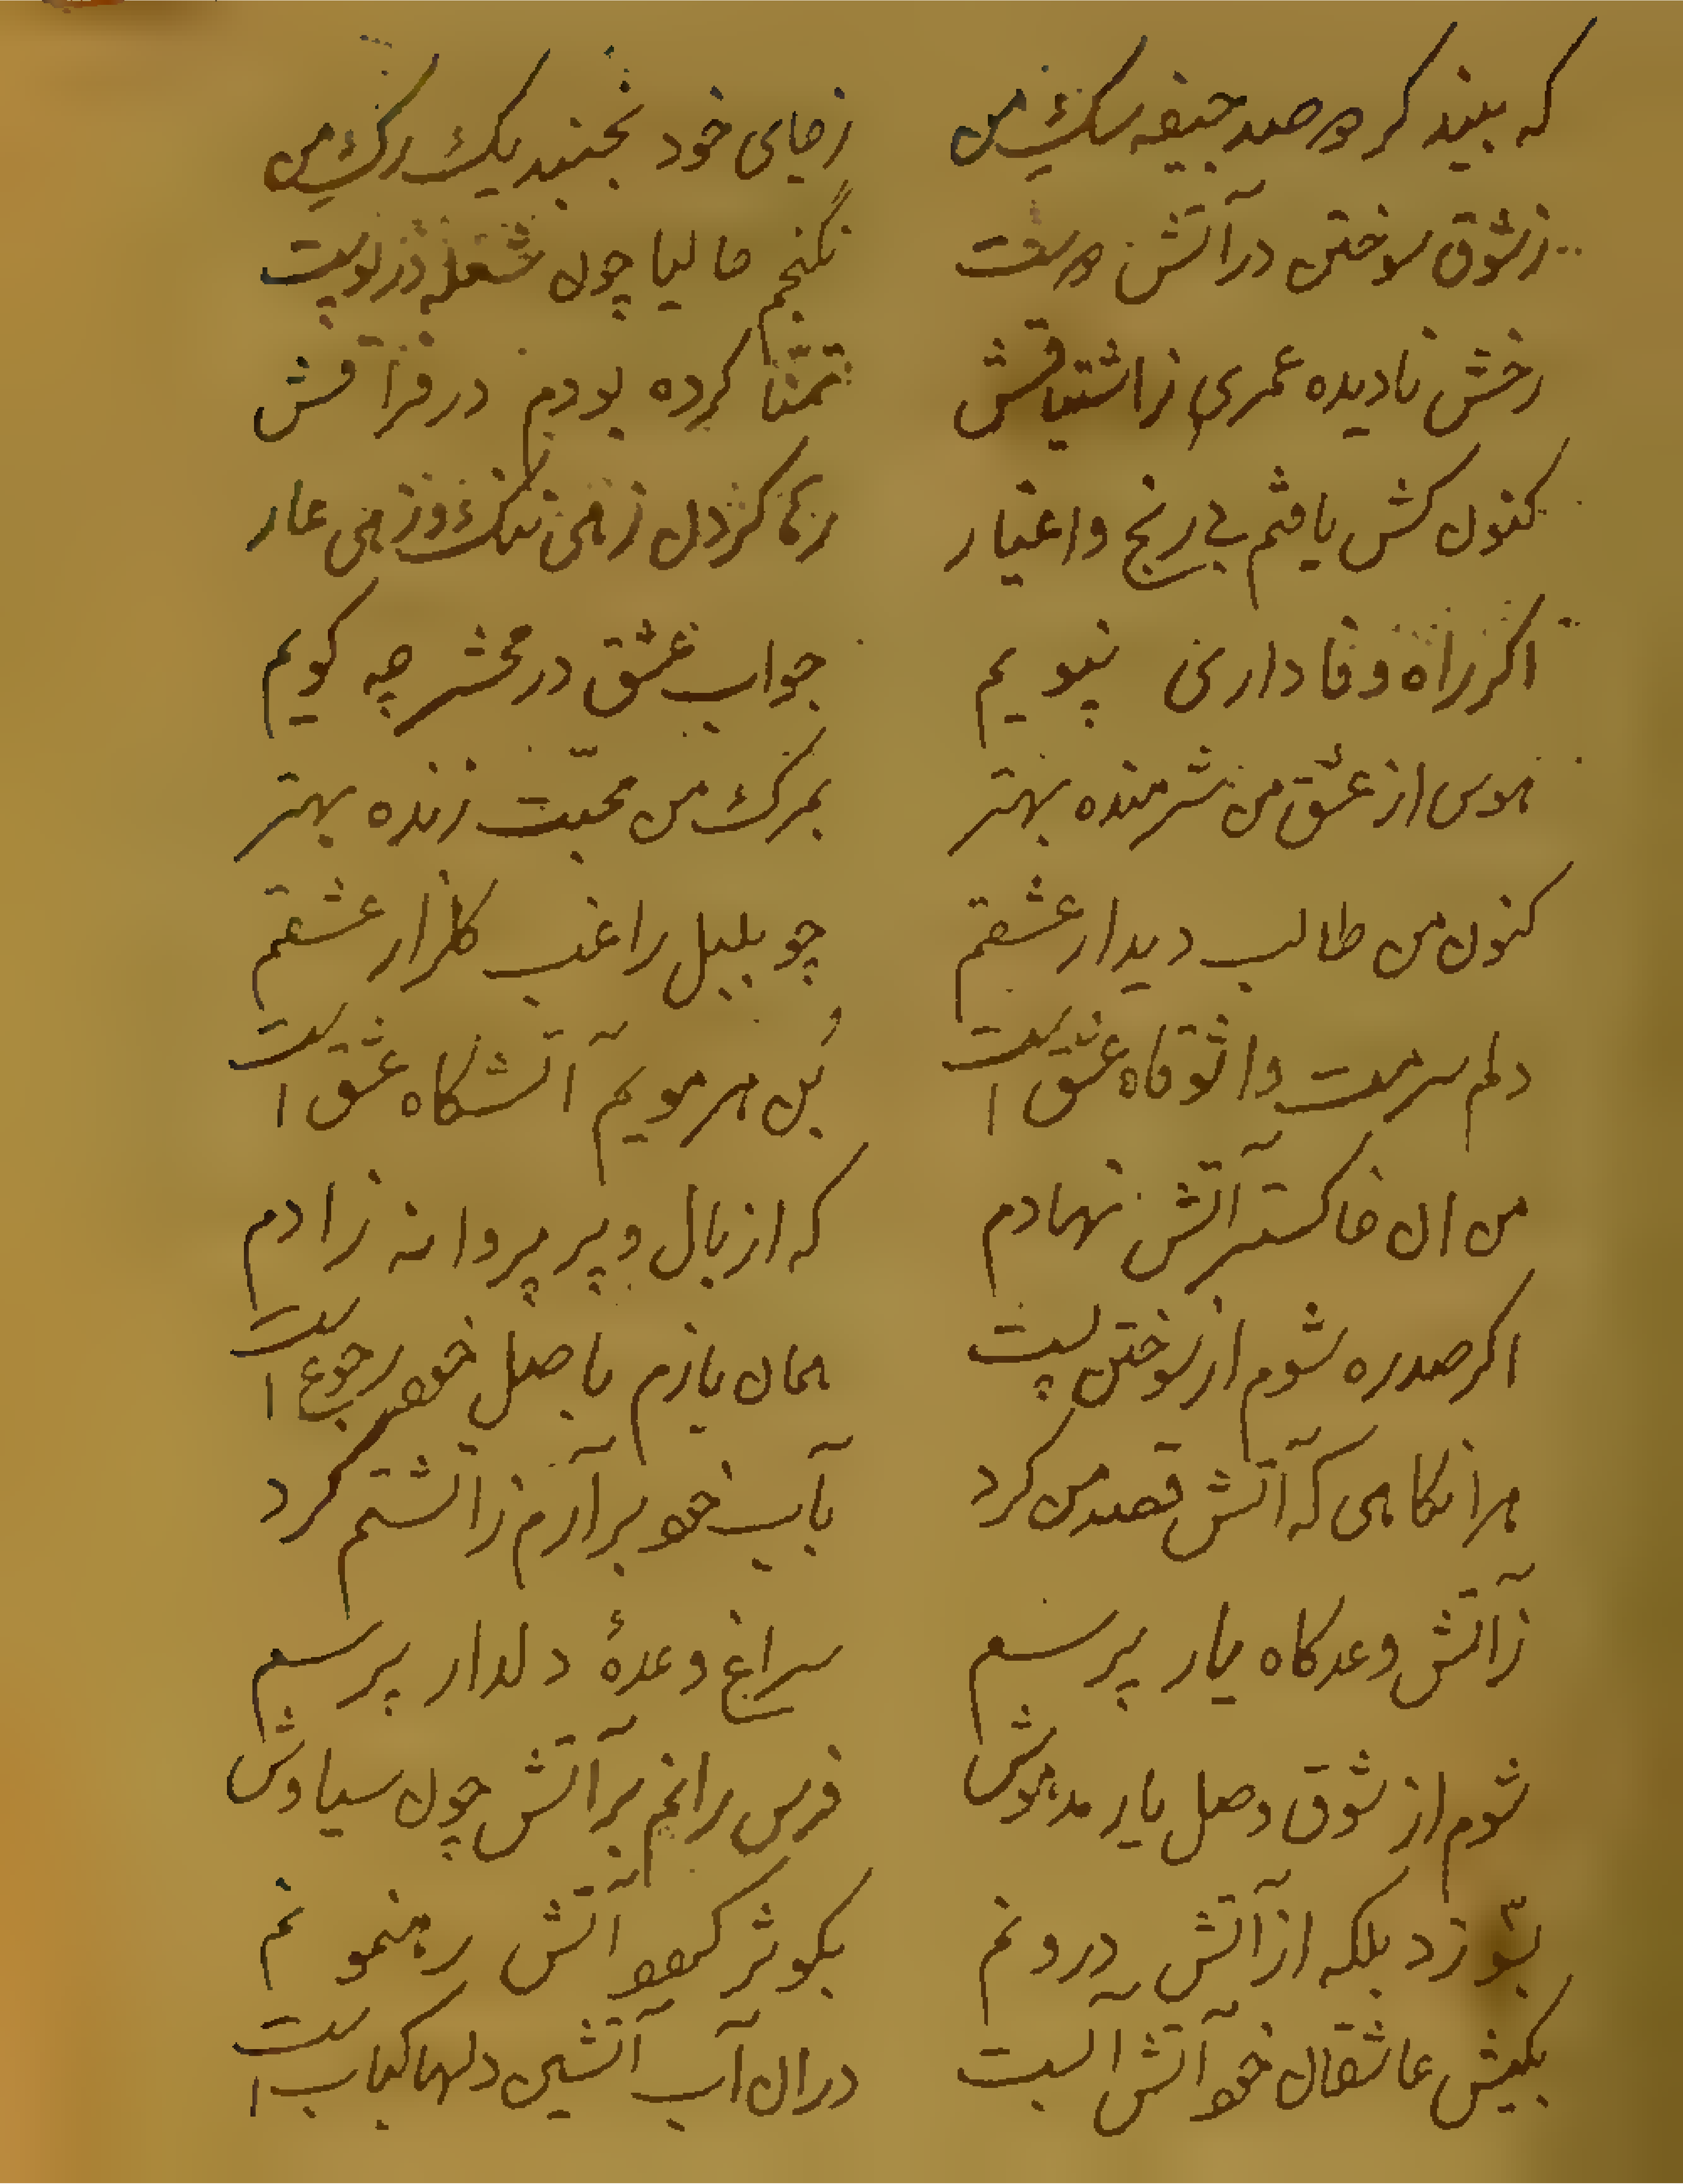 که بیند کر صد جیفه سک من
زجای خود نجنبد یک رک من
زشوق سوختن در آتش
نکنجم حالیا چون شعله در پوست
رخش نادیده عمری ز اشتیاقش
تمنّا کرده بودم در فراقش
کنون کش یافتم بی رنج واغیار
ننک وز می عار
اکر راه وفاداری نپویم
جواب عشق در محشر چه کویم
هوس از عشق من شرمنده بهتر
بمرک من محبّت زنده بهتر
کنون من طالب دیدار عشقم
چو بلبل راغب کلزار عشقم
دلم سرمست عشق است
بُن هر مویم آتشکاه عشق است
من ان خاکستر آتش نهادم
که از بال و پر پروانه زادم
اکر صدره شوم از سوختن پست
همان بازم باصل خود رجوع است
هرانکاهی که آتش قصد من کرد
بآب خود برآرم زاتشتم کرد
زآتش وعدکاه یار پرسم
سراغ وعدۀ دلدار پرسم
شوم از شوق وصل یار مدهوش
فرس رانم بر آتش چون سیاوش
بسوزد بلکه از آتش درونم
بکوثر کردد آتش رهنمونم
بکیش عاشقان خود آتش آبست
دران آب آتشین دلها کباب است